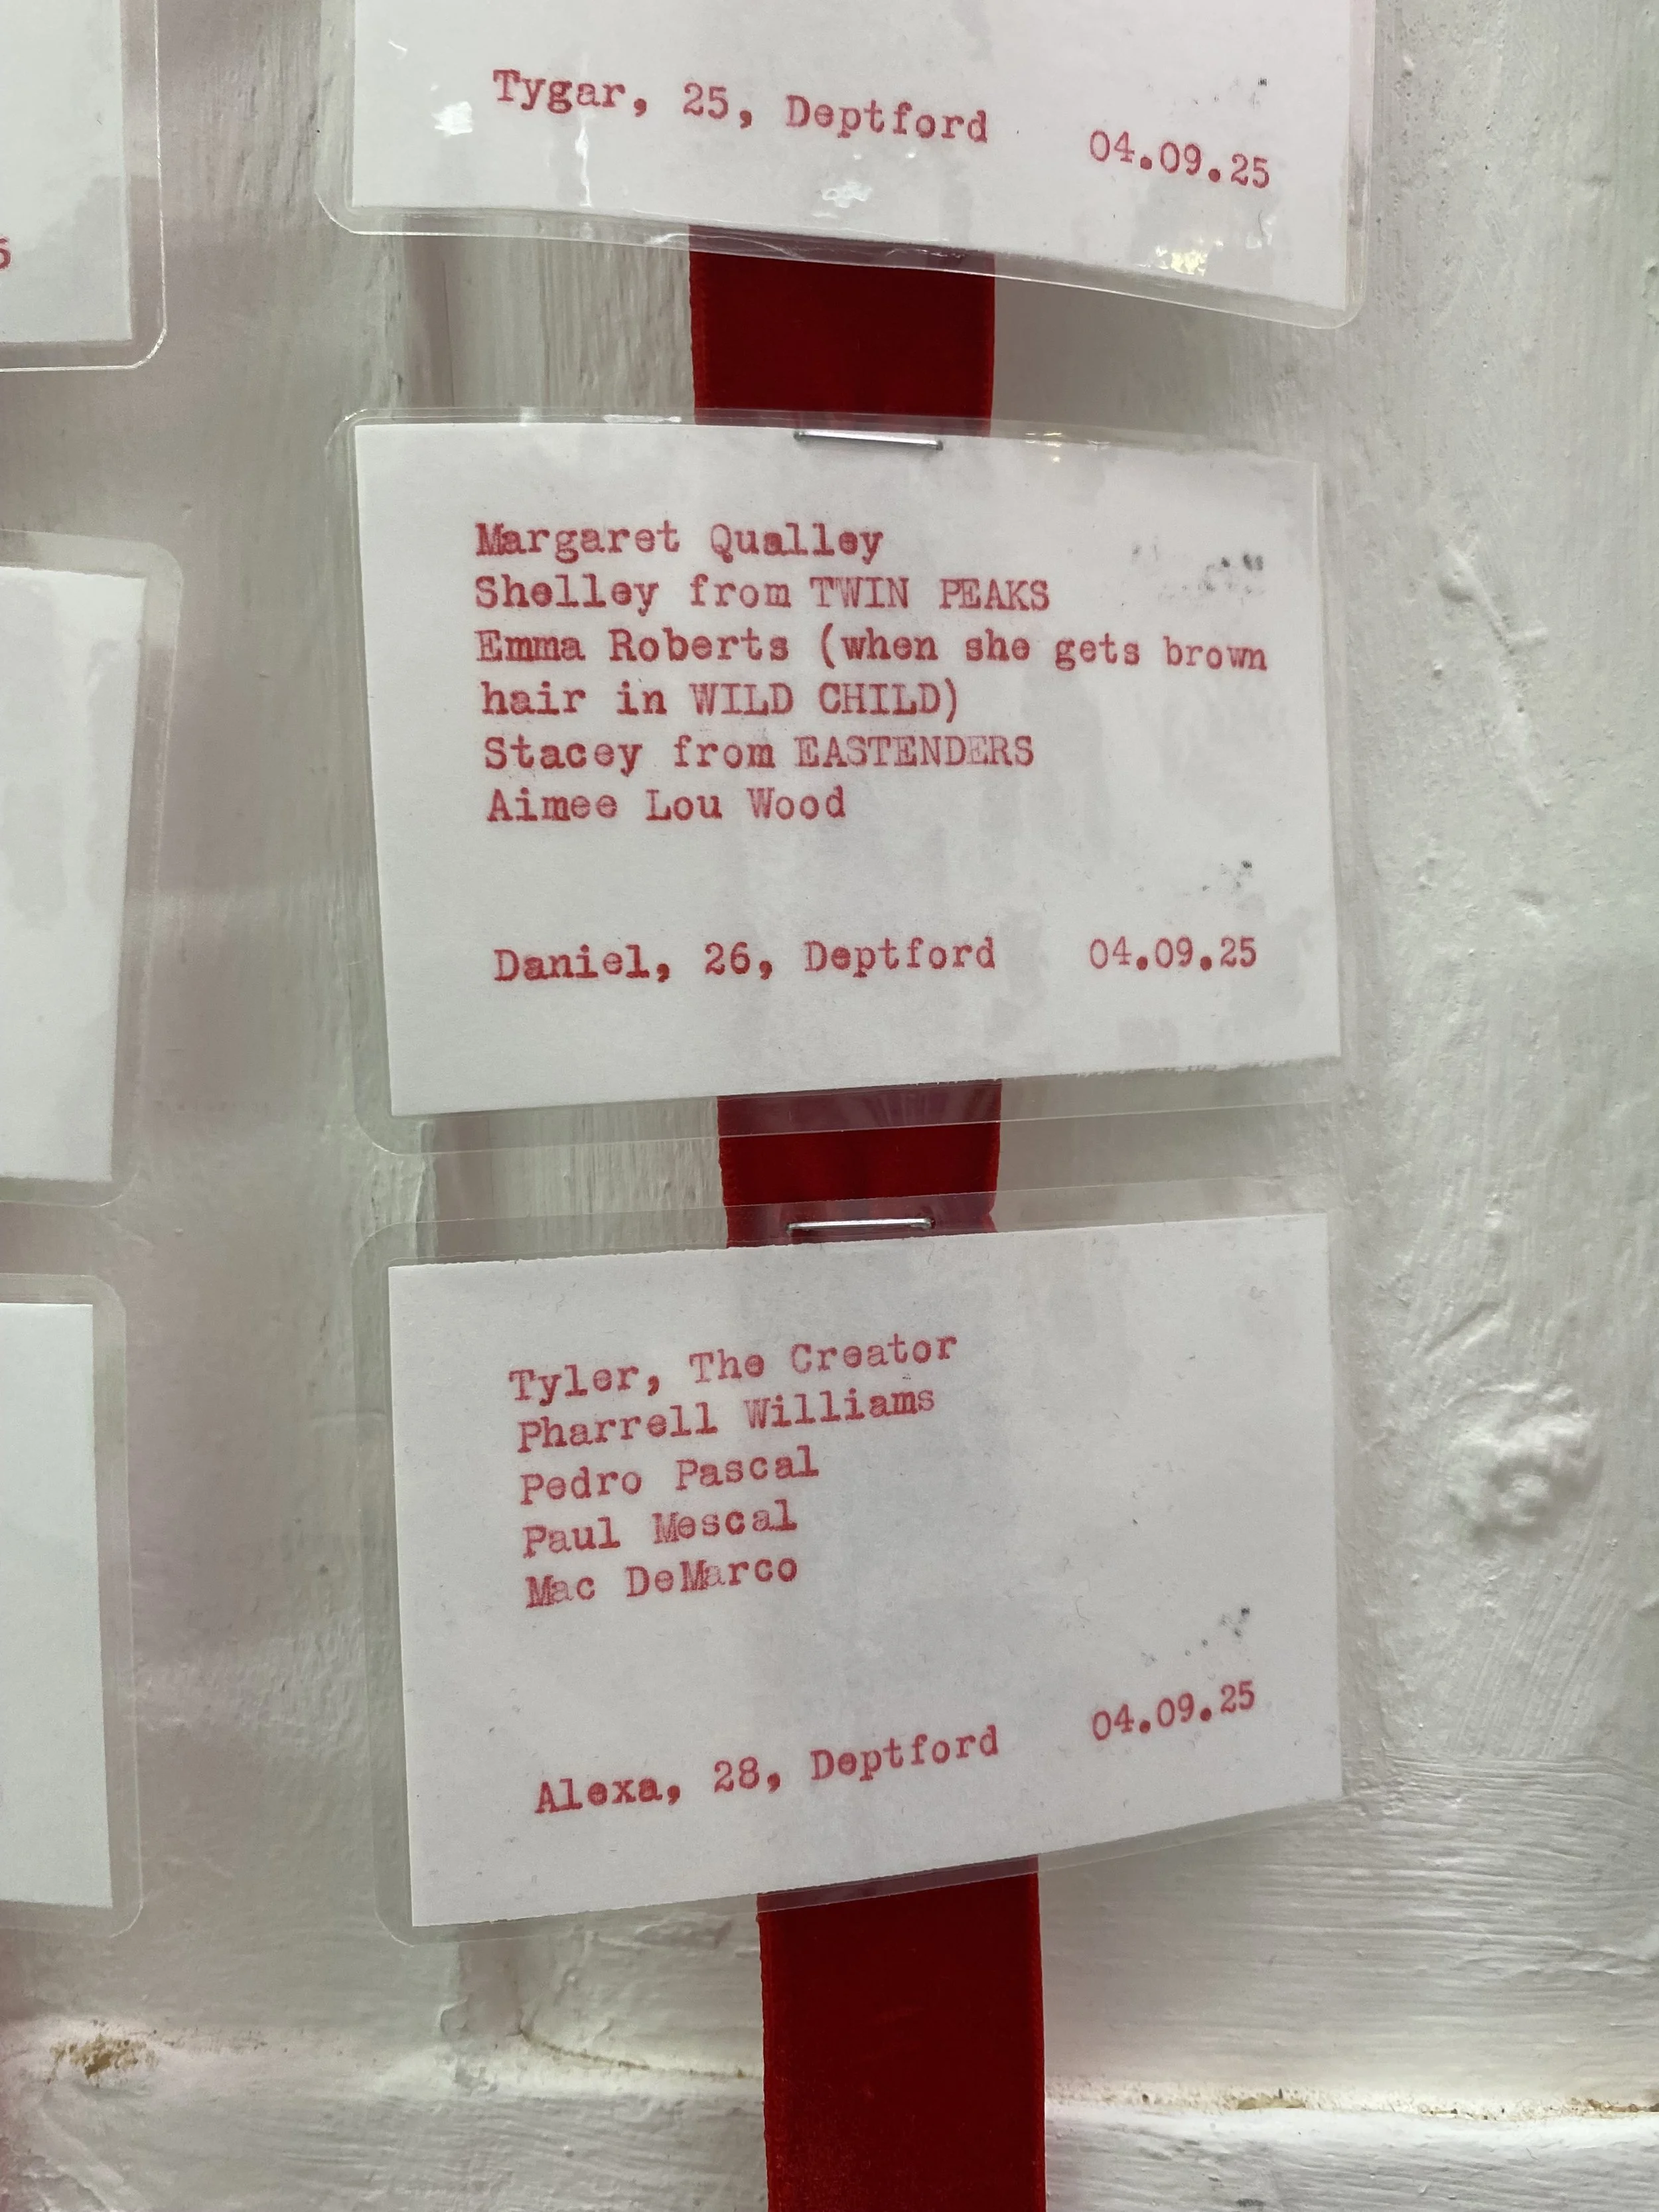 Tygar, 25, Deptford 04.09.25
Margaret Qualley
Shelley from TWIN PEAKS
Emma Roberts (when she gets brown
hair in WILD CHILD)
Stacey from EASTENDERS
Aimee Lou Wood
Daniel, 26, Deptford 04.09.25
Tyler, The Creator
Pharrell Williams
Pedro Pascal
Paul Mescal
Mac DeMarco
Alexa, 28, Deptford 04.09.25